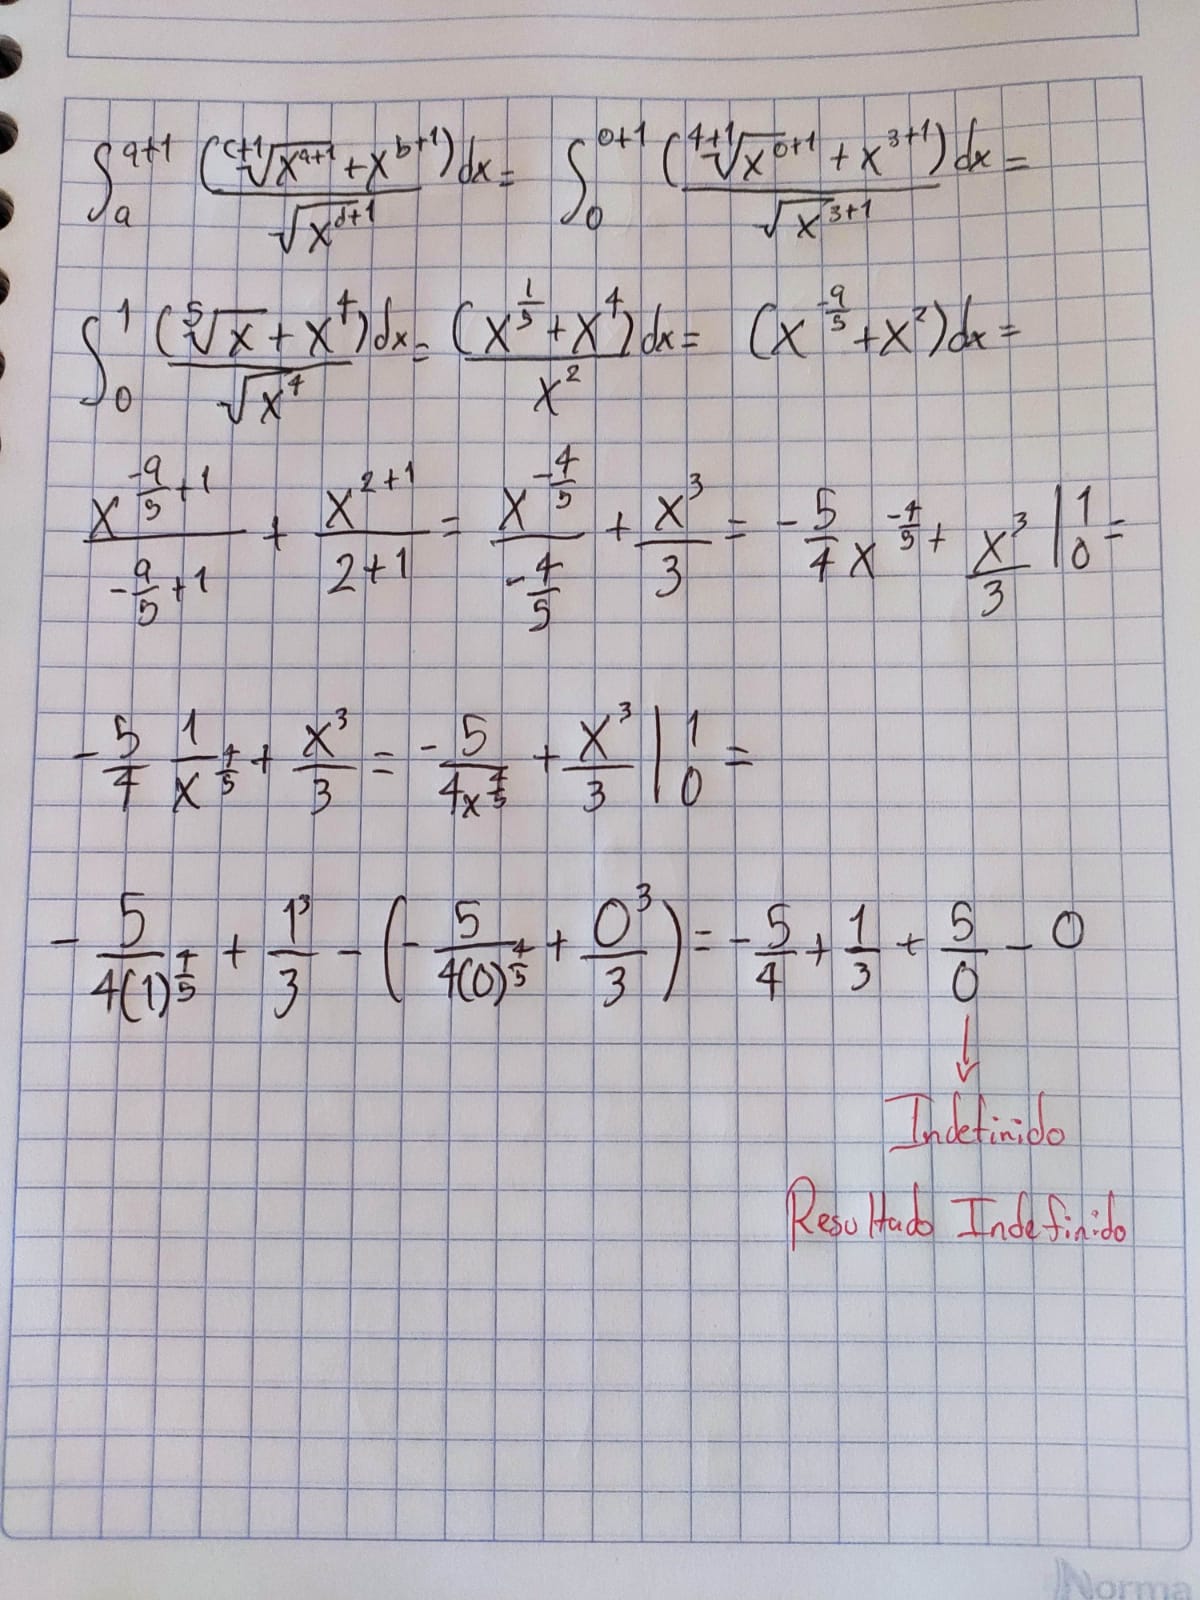 ∫_a^{a+1} (\sqrt[c+1]{x^{a+1}} + x^{b+1})dx / \sqrt{x^{d+1}} = ∫_0^{0+1} (\sqrt[4+1]{x^{0+1}} + x^{3+1})dx / \sqrt{x^{3+1}} =
∫_0^1 (\sqrt[5]{x} + x^4)dx / \sqrt{x^4} = (x^{1/5} + x^4)dx / x^2 = (x^{-9/5} + x^2)dx =
x^{-9/5+1} / (-9/5+1) + x^{2+1} / (2+1) = x^{-4/5} / (-4/5) + x^3/3 = -5/4 x^{-4/5} + x^3/3 |_0^1 =
-5/4 1/x^{4/5} + x^3/3 = -5/(4x^{4/5}) + x^3/3 |_0^1 =
-5/(4(1)^{4/5}) + 1^3/3 - (-5/(4(0)^{4/5}) + 0^3/3) = -5/4 + 1/3 + 5/0 - 0
↓
Indefinido
Resultado Indefinido
Norma